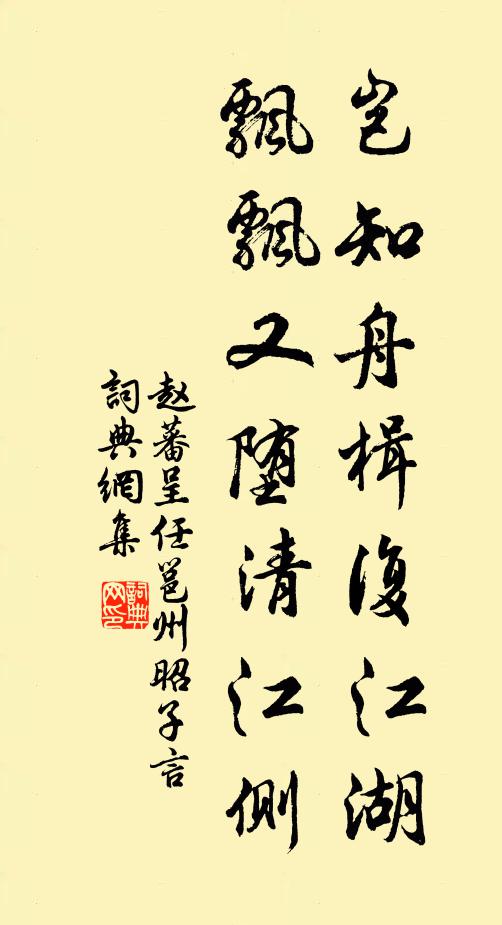 岂知舟楫復江湖
飄飄又堕清江側
赵蕃呈任邕州昭子言
詞典網集
詞典網印